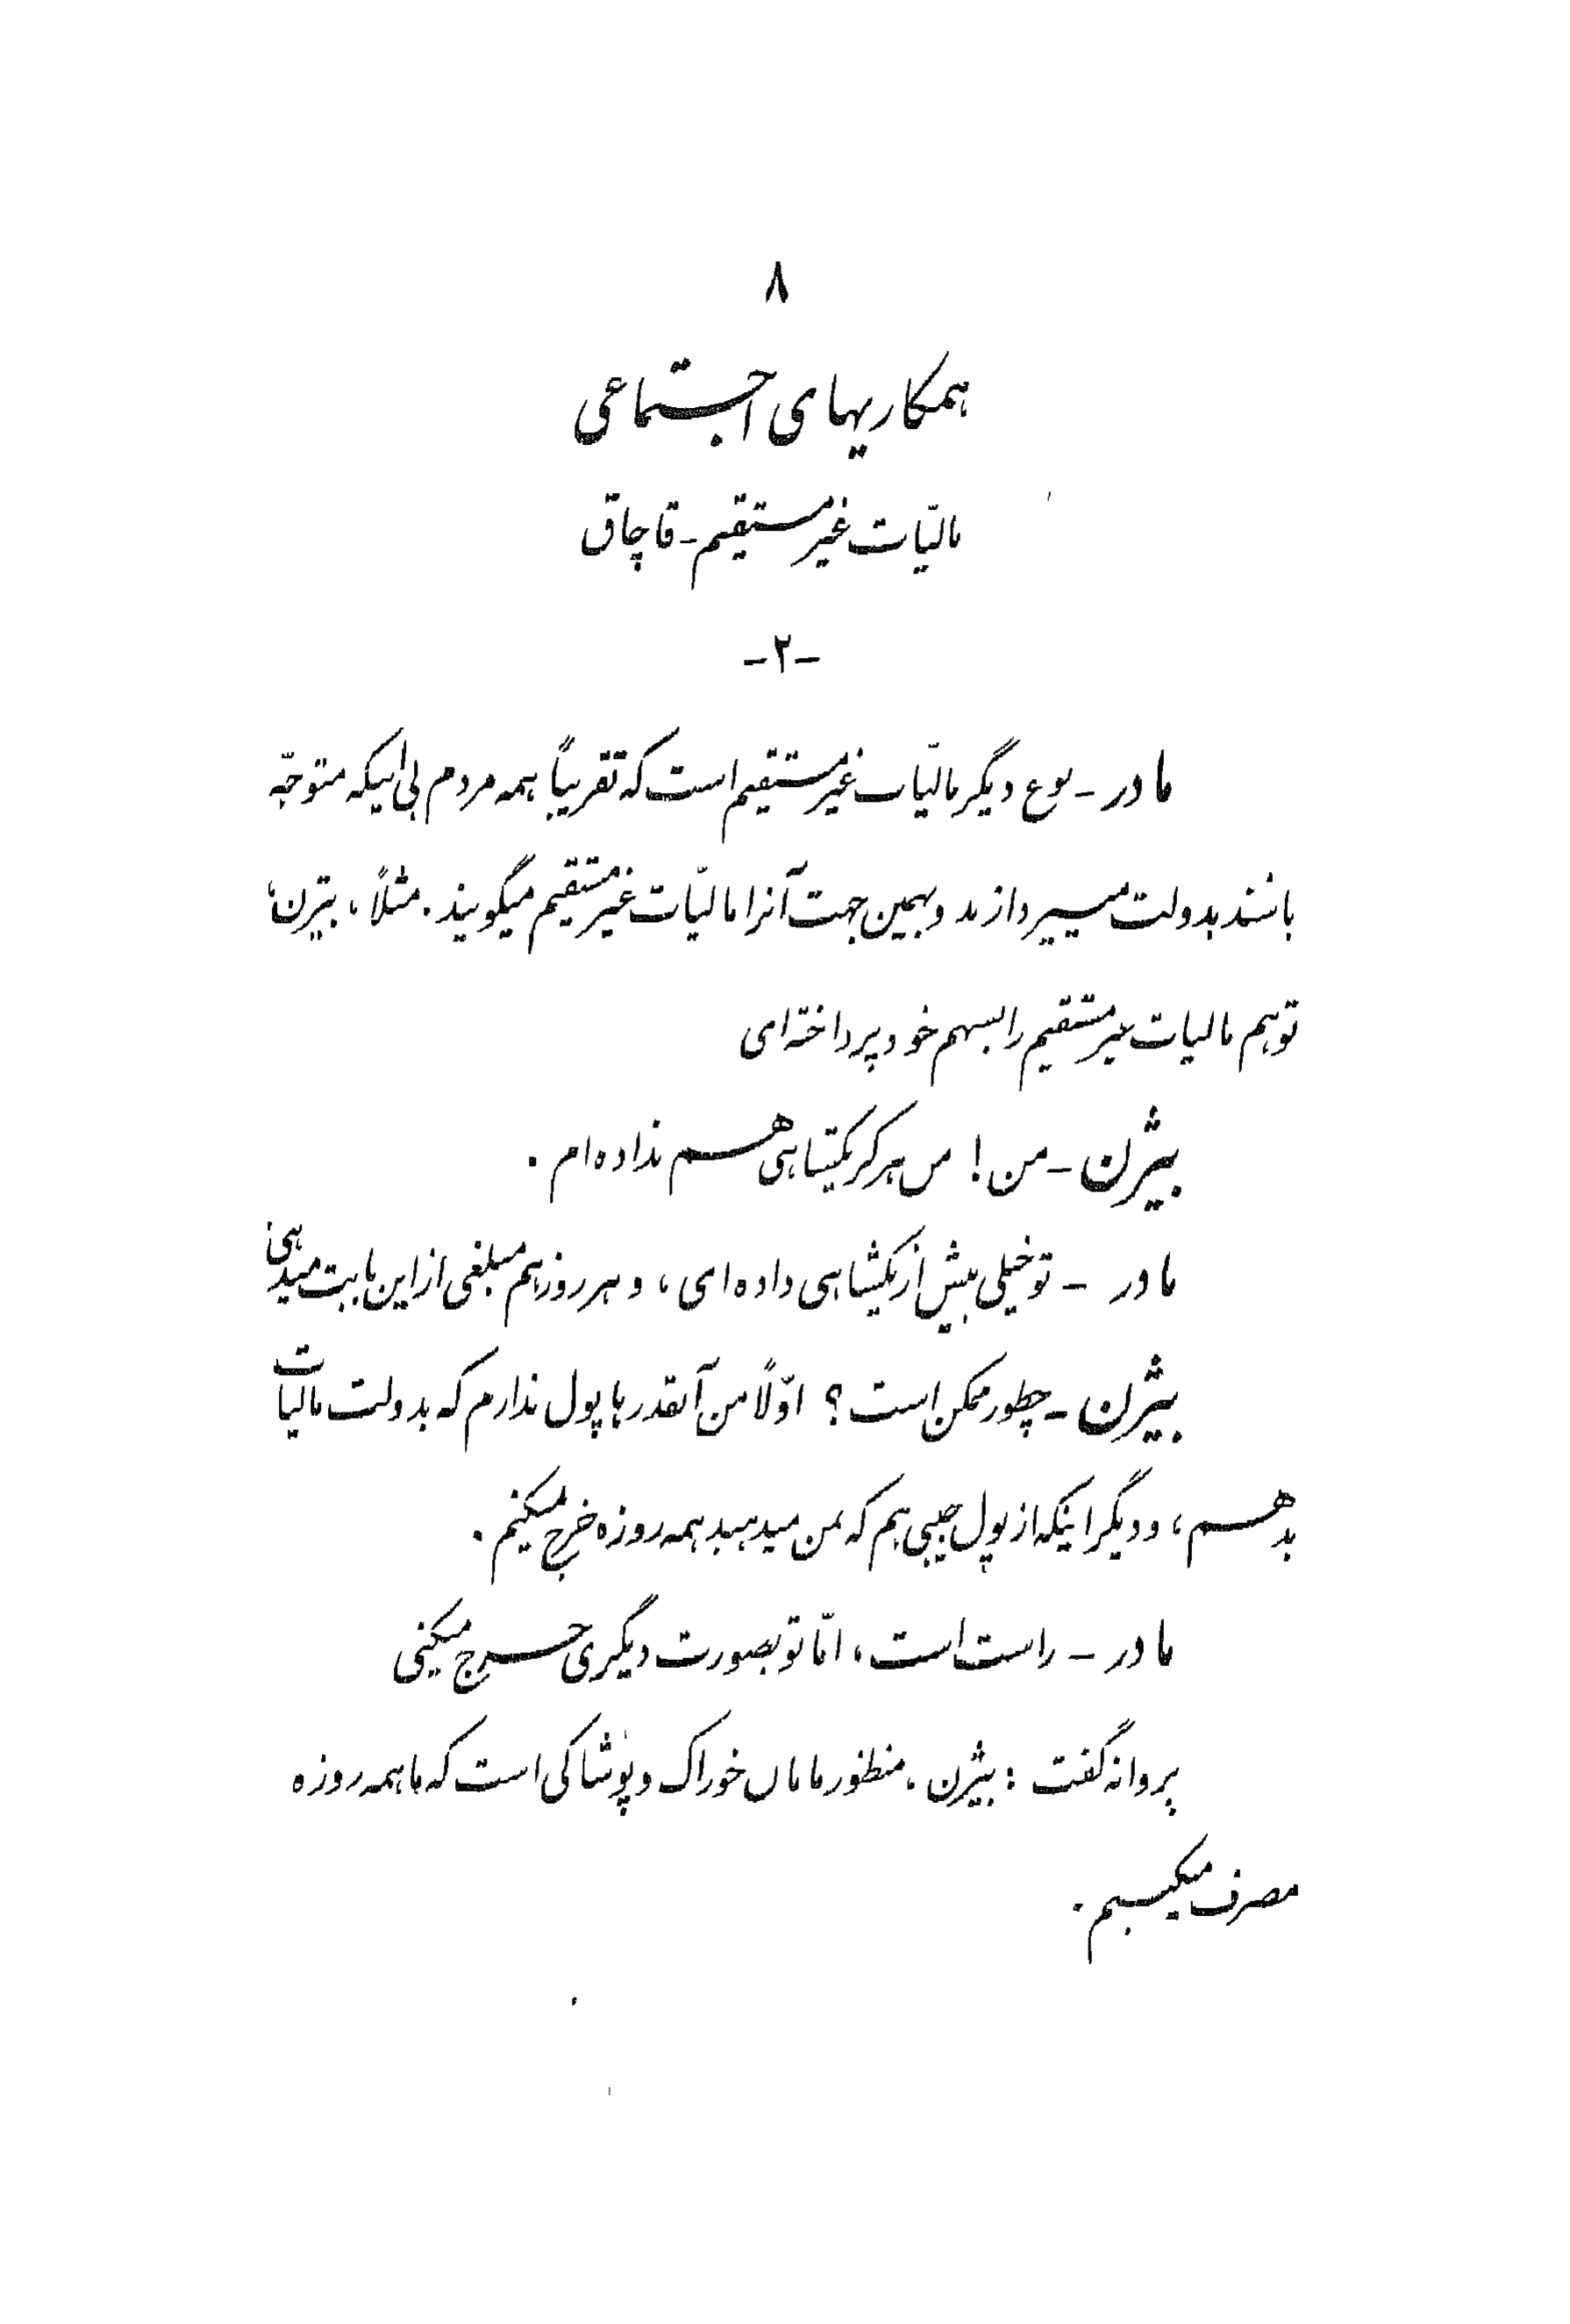 ۸
همکاریهای اجتماعی
مالیّات غیر مستقیم - قاچاق
-۲-
مادر - نوع دیگر مالیّات غیر مستقیم است که تقریباً همه مردم بی اینکه متوجّه
باشند بدولت میپردازند و بهمین جهت آنرا مالیّات غیر مستقیم میگویند. مثلاً، بیژن،
تو هم مالیات غیر مستقیم را بسهم خود پرداخته‌ای
بیژن - من! من هرگز یکشاهی هم نداده‌ام.
مادر - تو خیلی بیش از یکشاهی داده‌ای، و هر روز هم مبلغی از این بابت میدهی
بیژن - چطور ممکن است؟ اوّلاً من آنقدرها پول ندارم که بدولت مالیات
بدهم، و دیگر اینکه از پول جیبی هم که بمن میدهید همه روزه خرج میکنم.
مادر - راست است، امّا تو بصورت دیگری خرج میکنی
پروانه گفت: بیژن، منظور مامان خوراک و پوشاکی است که ما همه روزه
مصرف میکنیم.